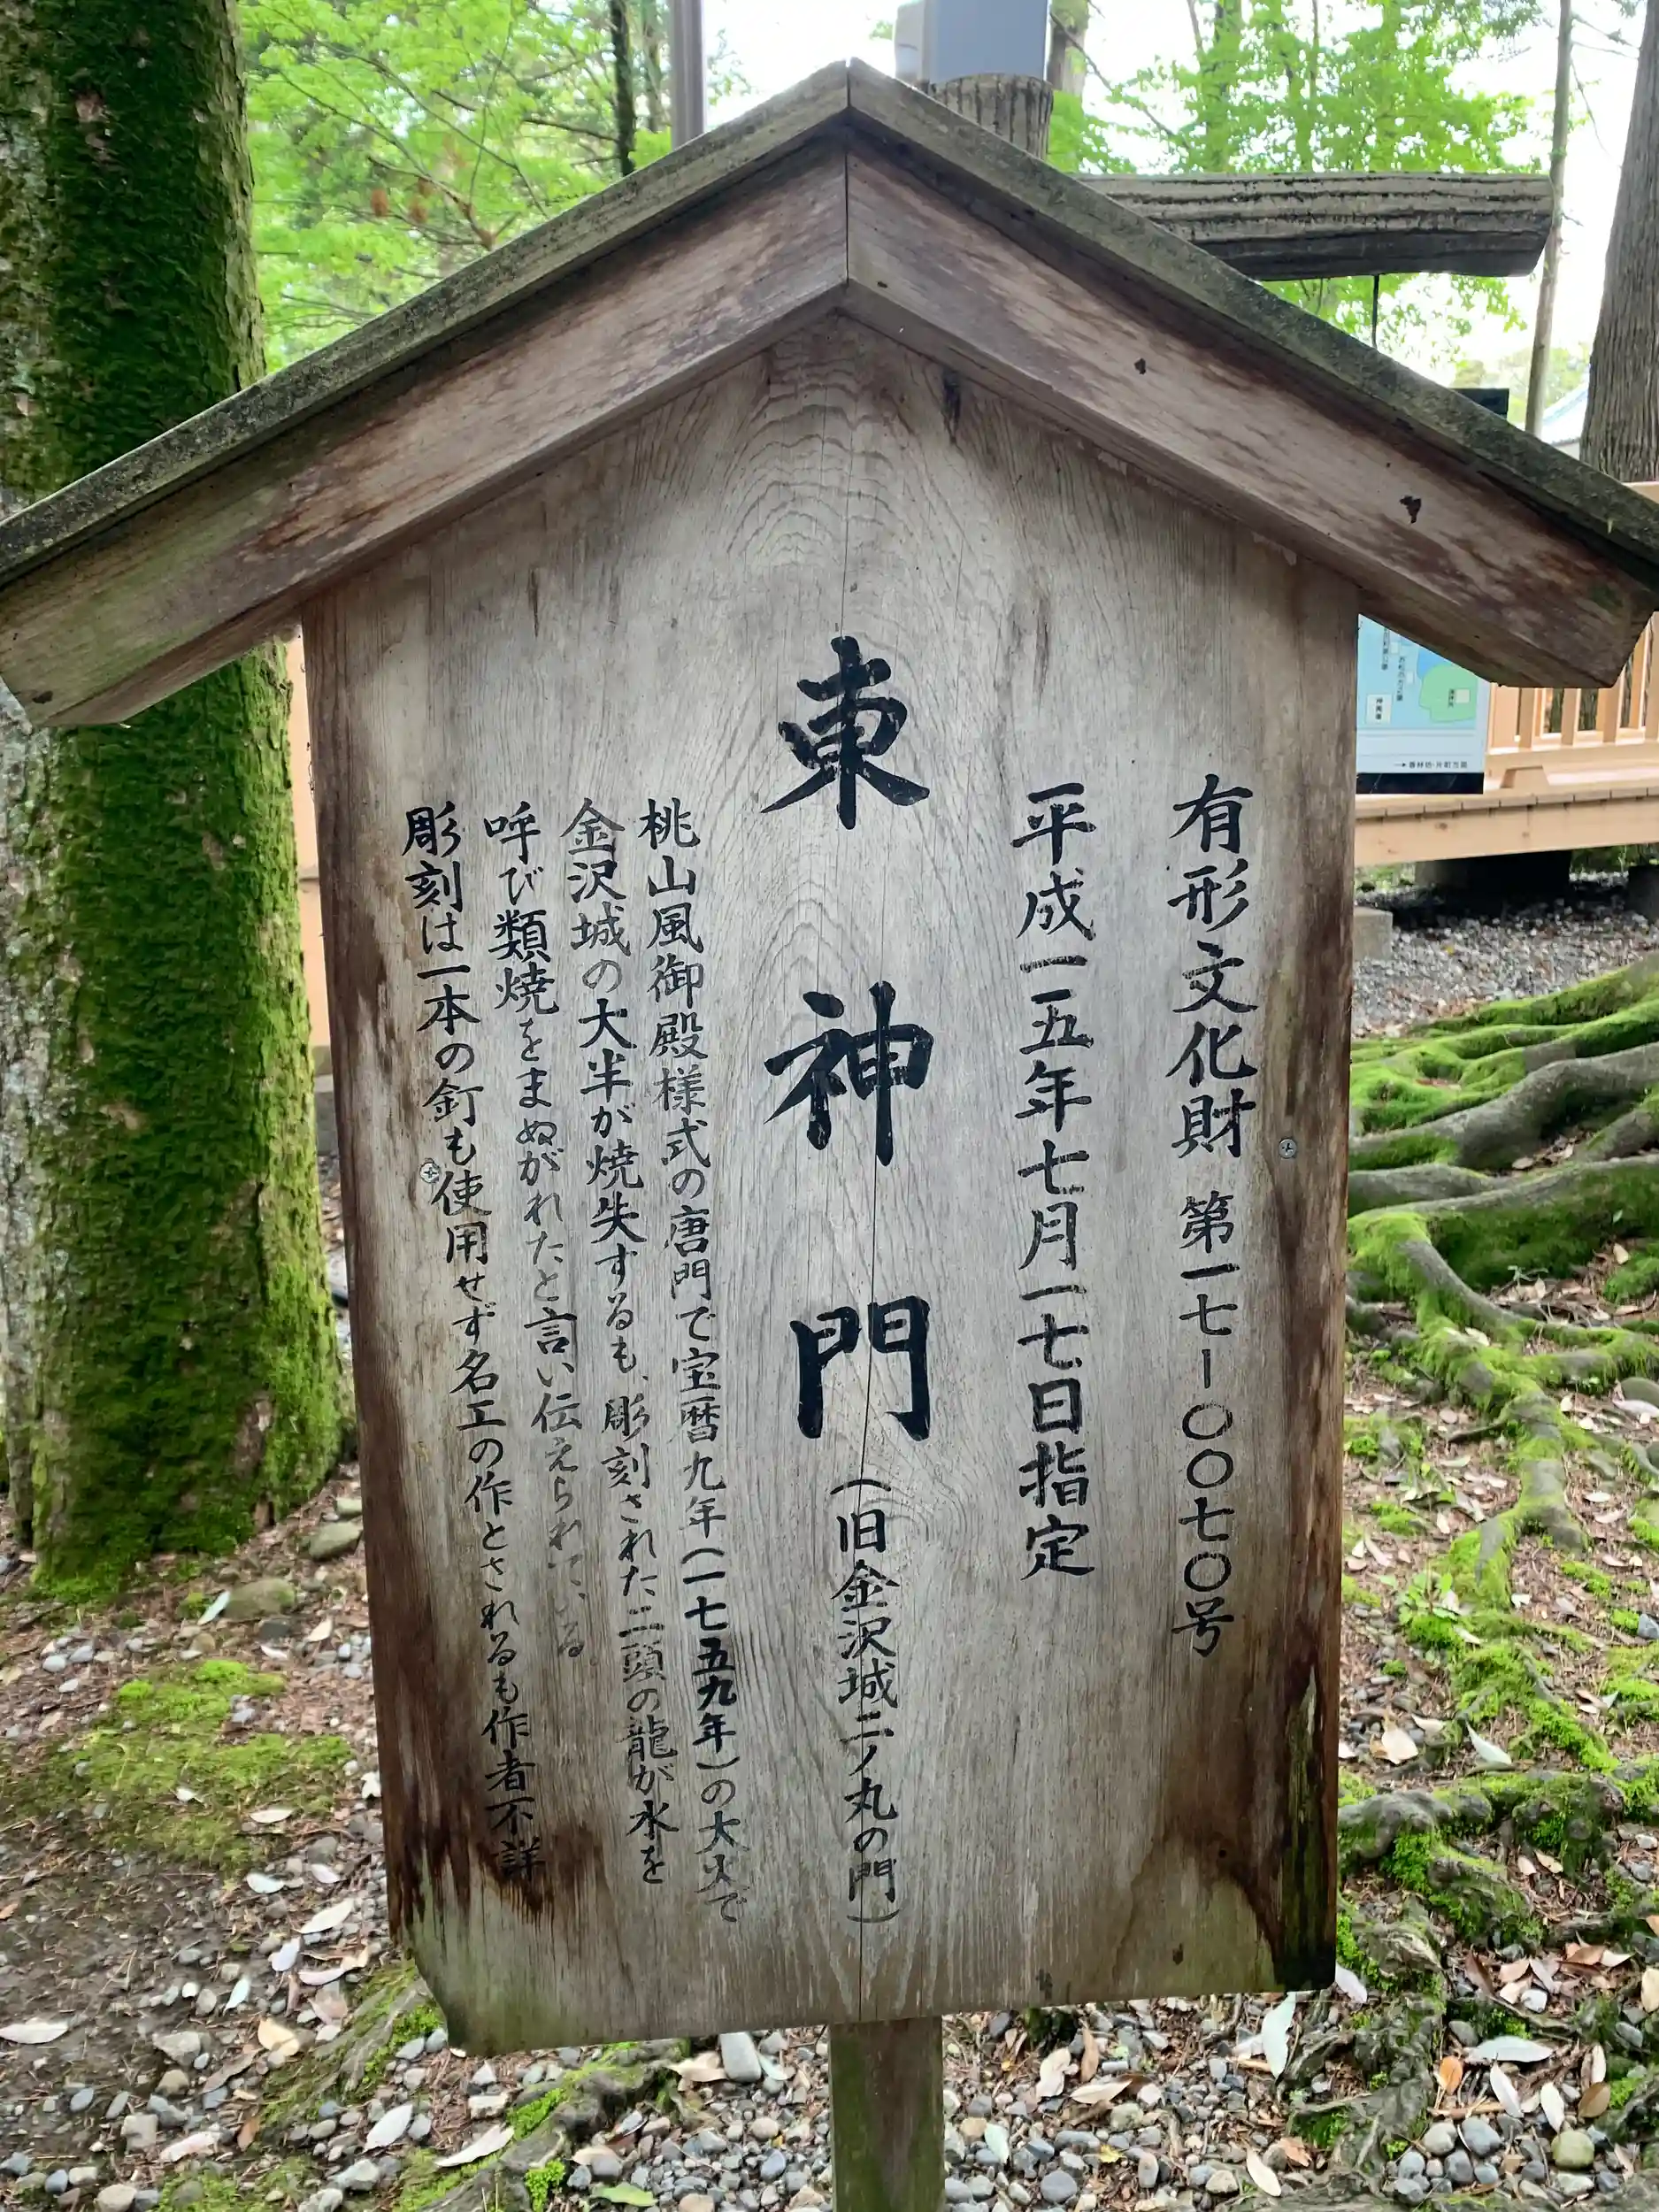 有形文化財 第一七ー〇〇七〇号
平成一五年七月一七日指定
東神門(旧金沢城二ノ丸の門)
桃山風御殿様式の唐門で宝暦九年(一七五九年)の大火で
金沢城の大半が焼失するも、彫刻された二頭の龍が水を
呼び類焼をまぬがれたと言い伝えられている
彫刻は一本の釘も使用せず名工の作とされるも作者不詳